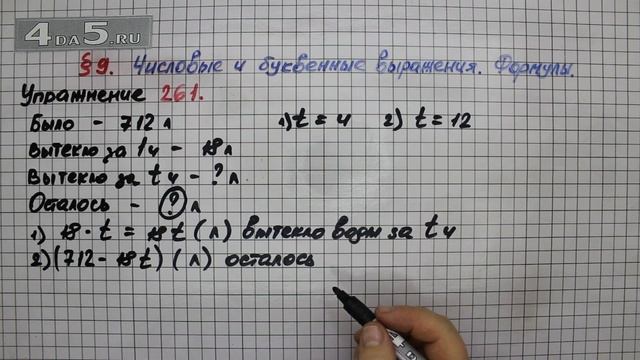 4DA5.RU
§9. Числовые и буквенные выражения. Формулы.
Упражнение 261.
Было - 712 л 1) t = 4 2) t = 12
Вытекло за 1ч - 18 л
Вытекло за t ч - ? л
Осталось - ? л
1) 18 · t = 18t (л) вытекло воды за t ч
2) (712 - 18t) (л) осталось